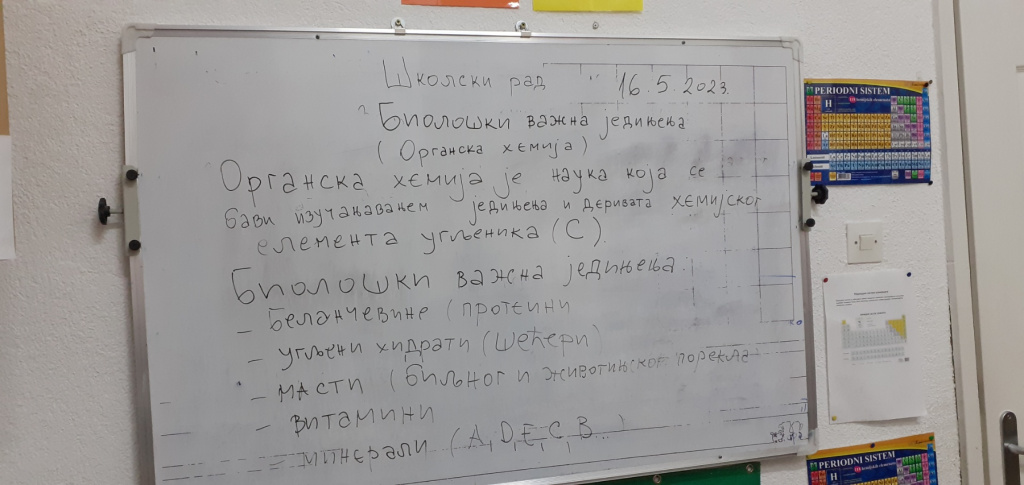 Школски рад 16.5.2023.
Биолошки важна једињења
( Органска хемија )
Органска хемија је наука која се
бави изучањавањем једињења и деривата хемијског
елемента угљеника (C)
Биолошки важна једињења.
- Беланчевине (протеини
- угљени хидрати (шећери)
- масти (биљног и животињског порекла
- витамини
- минерали (A, D, E, C, B...)
PERIODNI SISTEM
H
PERIODNI SISTEM
H